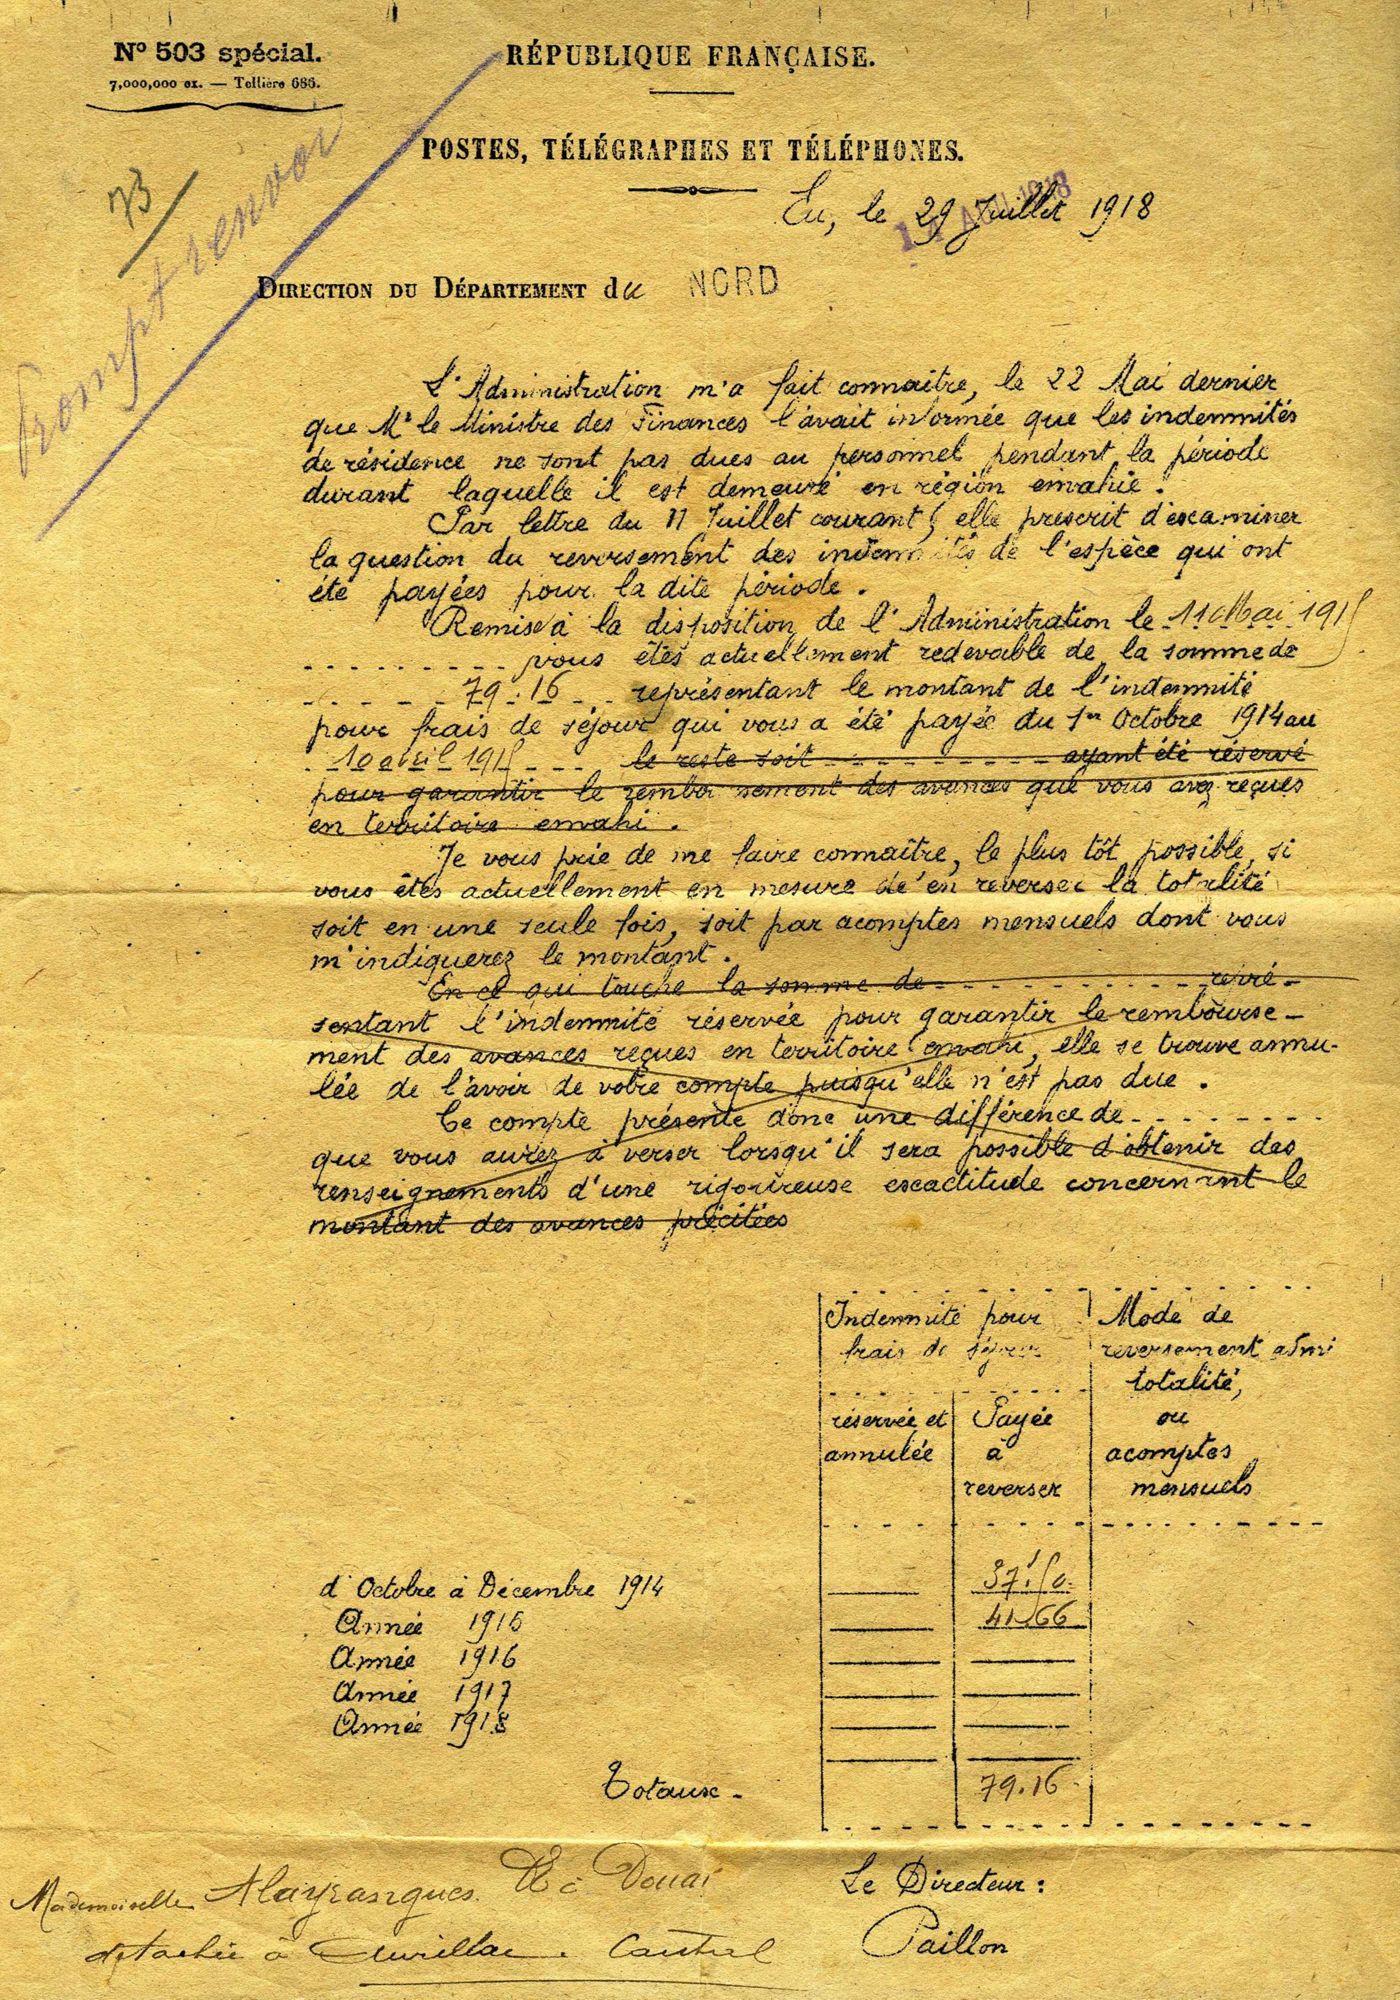 Nº 503 spécial.
7,000,000 ex. — Tellière 686.
RÉPUBLIQUE FRANÇAISE.
POSTES, TÉLÉGRAPHES ET TÉLÉPHONES.
73
Prompt renvoi
Eu, le 29 Juillet 1918
DIRECTION DU DÉPARTEMENT du NORD
L'Administration m'a fait connaitre, le 22 Mai dernier
que Mr le Ministre des Finances l'avait informée que les indemnités
de résidence ne sont pas dues au personnel pendant la période
durant laquelle il est demeuré en région envahie.
Par lettre du 11 Juillet courant, elle prescrit d'examiner
la question du reversement des indemnités de l'espèce qui ont
été payées pour la dite période.
Remise à la disposition de l'Administration le 11 Mai 1915
vous êtes actuellement redevable de la somme de
79.16 représentant le montant de l'indemnité
pour frais de séjour qui vous a été payée du 1er Octobre 1914 au
10 avril 1915 le reste soit ayant été réservé
pour garantir le remboursement des avances que vous avez reçues
en territoire envahi.
Je vous prie de me faire connaître, le plus tôt possible, si
vous êtes actuellement en mesure de'en reverser la totalité
soit en une seule fois, soit par acomptes mensuels dont vous
m'indiquerez le montant.
En ce qui touche la somme de repré-
sentant l'indemnité réservée pour garantir le rembourse-
ment des avances reçues en territoire envahi, elle se trouve annu-
lée de l'avoir de votre compte puisqu'elle n'est pas due.
Ce compte présente donc une différence de
que vous aurez à verser lorsqu'il sera possible d'obtenir des
renseignements d'une rigoureuse exactitude concernant le
montant des avances précitées
Indemnité pour
frais de séjour
Mode de
reversement admi
totalité,
ou
acomptes
mensuels
réservée et
annulée
Payée
à
reverser
d'Octobre à Décembre 1914 37.50
Année 1915 41.66
Année 1916
Année 1917
Année 1918
Totaux - 79.16
Le Directeur:
Paillon
Mademoiselle à Douai
détachée à Aurillac. Cantal